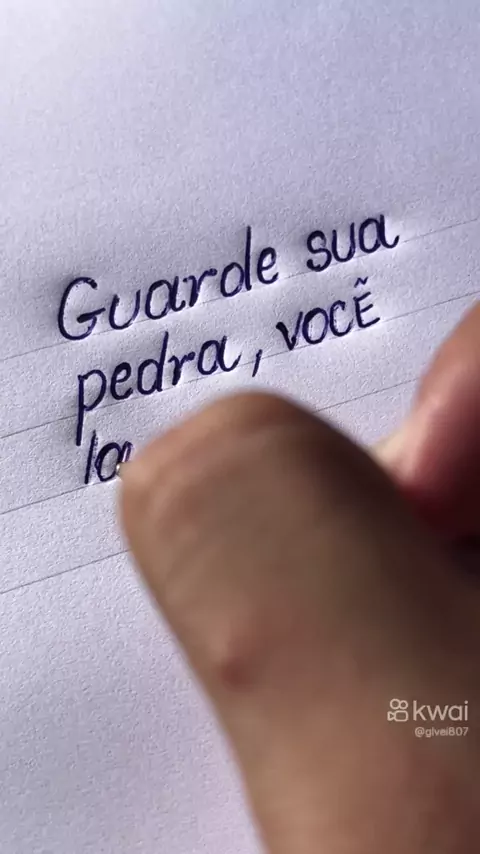 Guarde sua
pedra, você
la
kwai
@glvei807